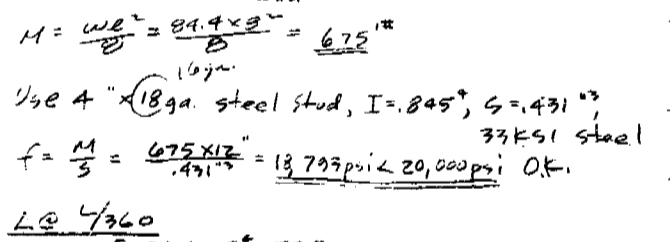 M = wl²/8 = 84.4 x 8²/8 = 675'#
16 ga.
Use 4" x 18 ga. steel stud, I = .845"⁴, S = .431"³,
33 KSI steel
f = M/S = 675 x 12"/.431"³ = 18,793 psi < 20,000 psi O.K.
L @ L/360